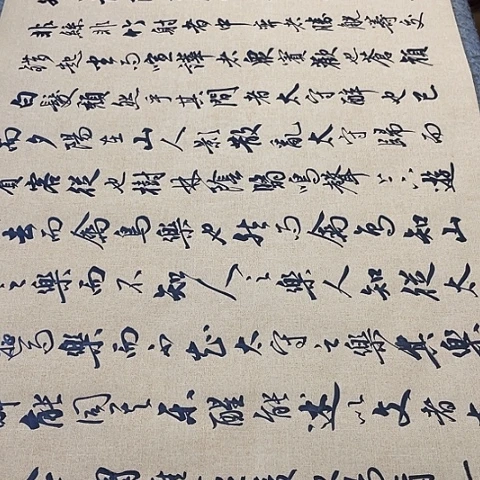 非絲非竹射者中弈者勝觥籌交
錯起坐而喧譁者衆賓歡也蒼顏
白髮頹然乎其間者太守醉也已
而夕陽在山人影散亂太守歸而
賓客從也樹林陰翳鳴聲上下遊
去而禽鳥樂也然而禽鳥知山
之樂而不知人之樂人知從太
遊而樂而不知太守之樂其樂
醉能同其樂醒能述以文者太